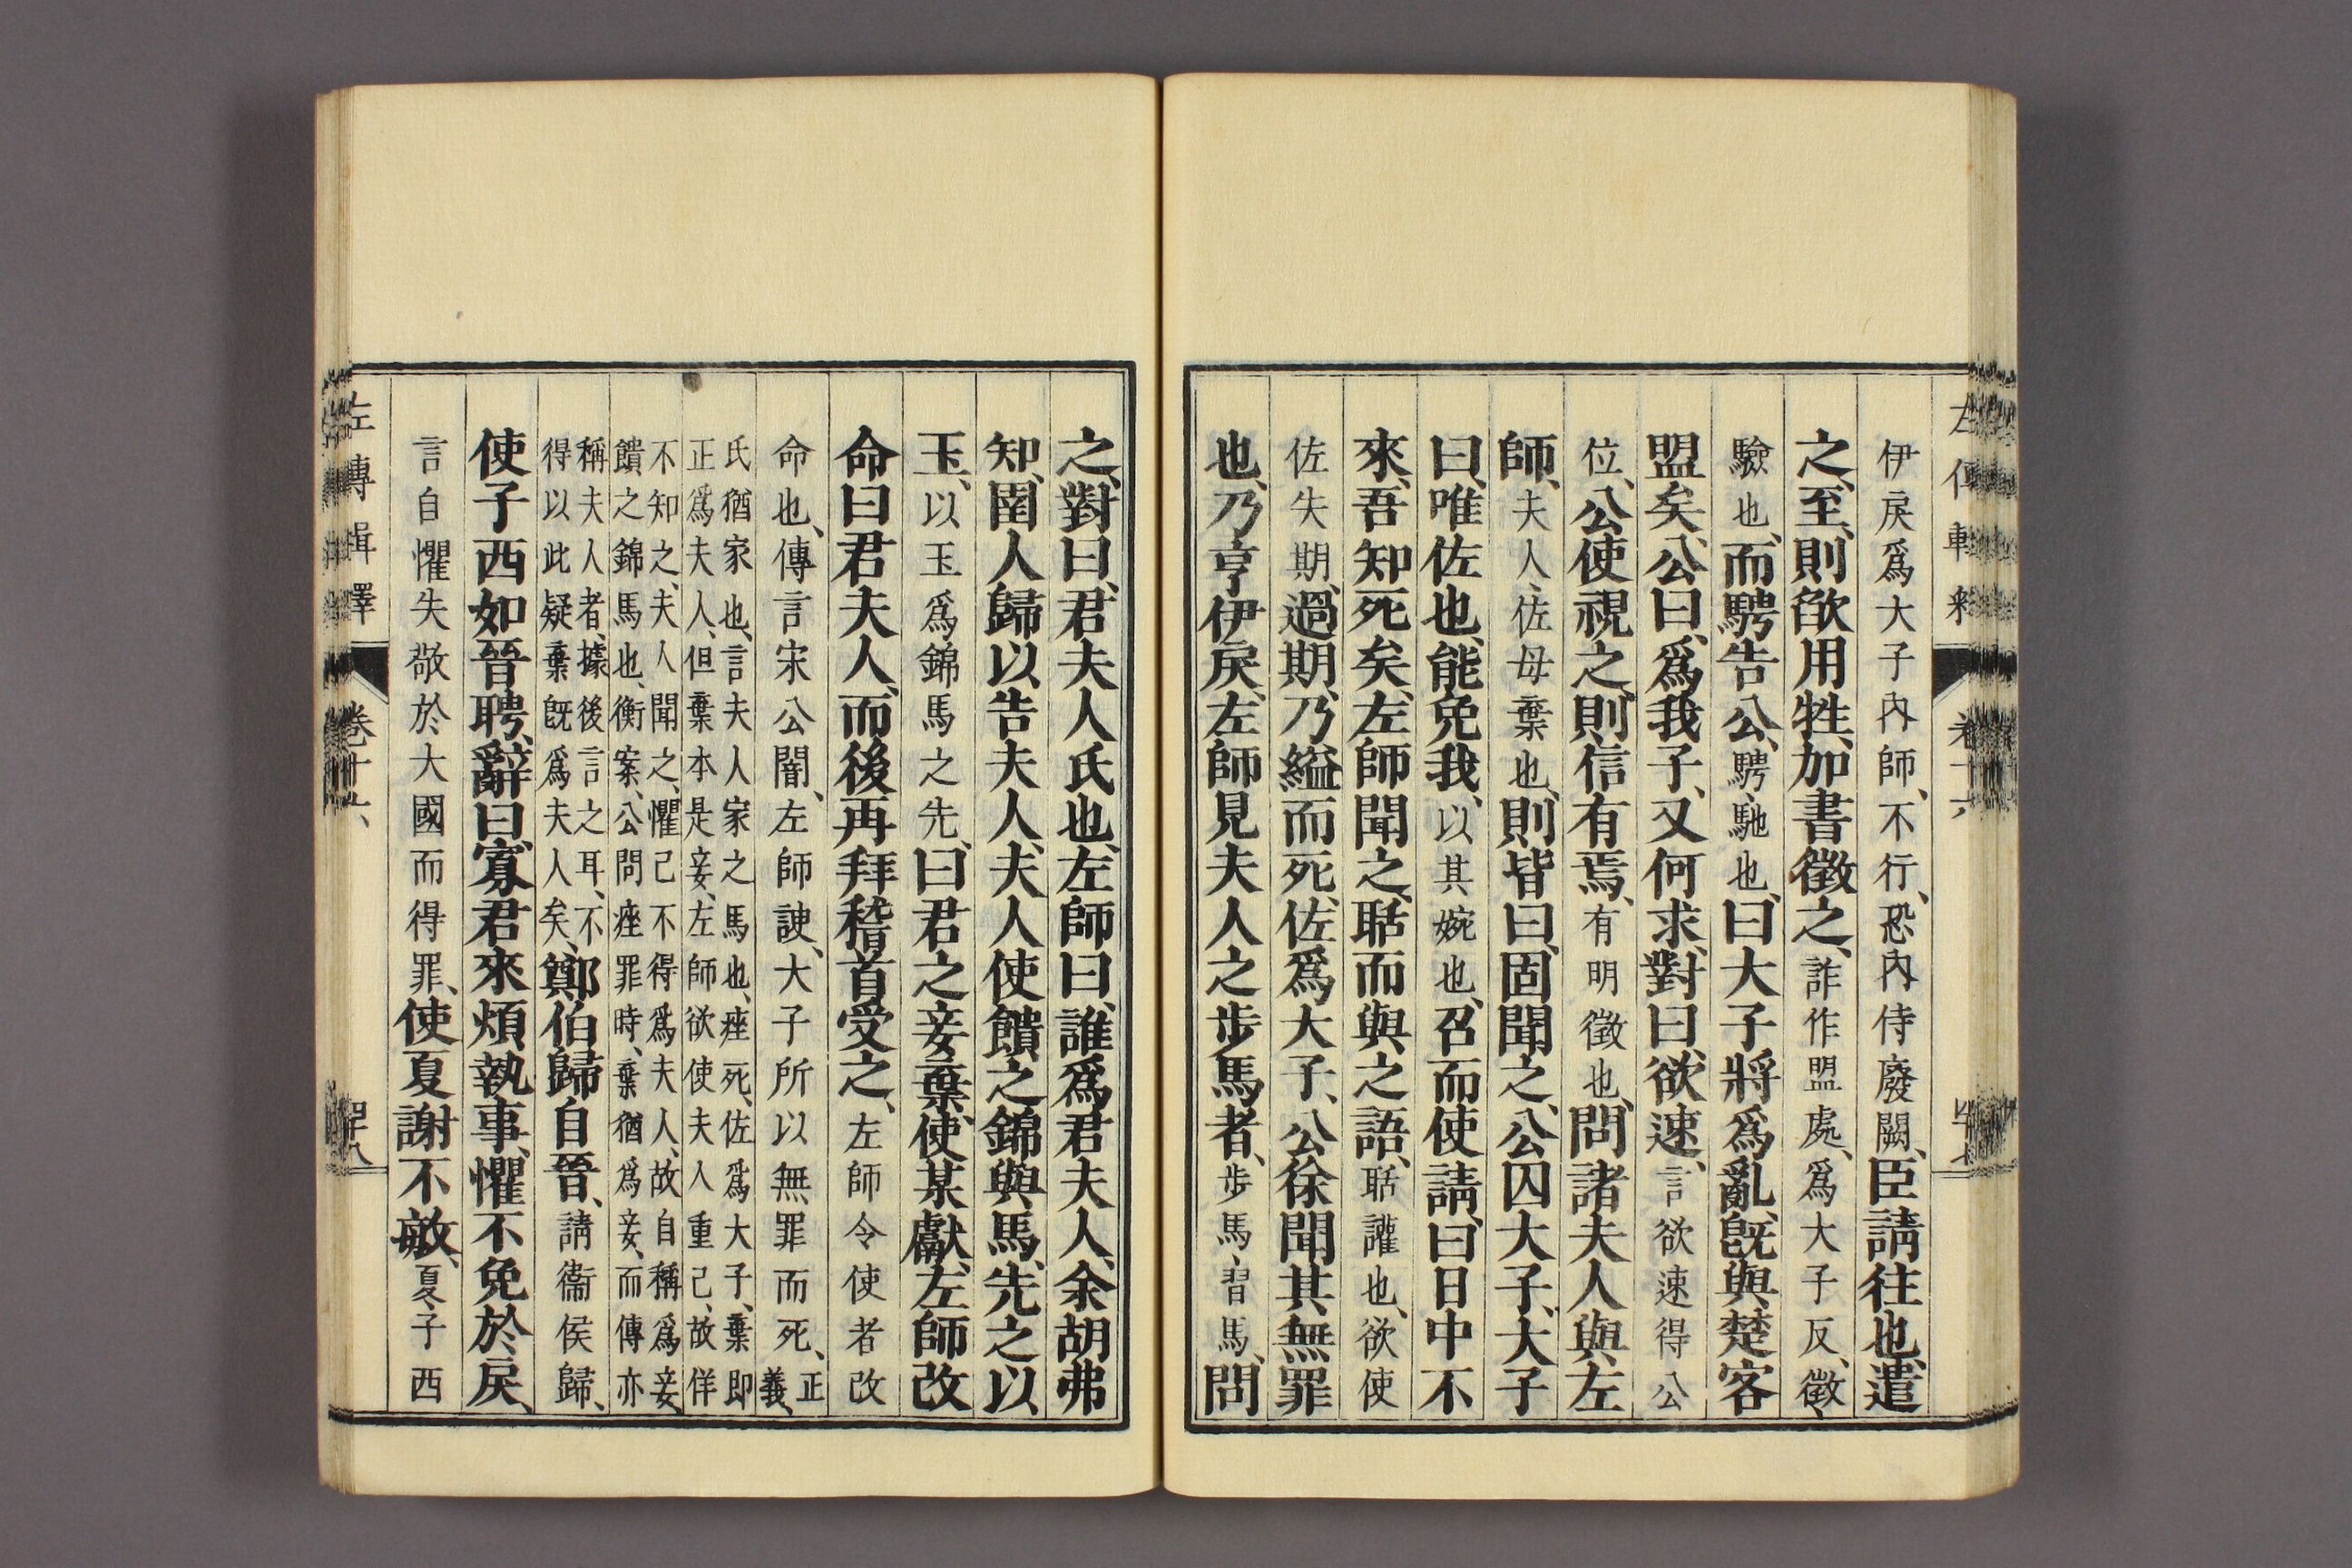 伊戾爲大子內師、不行、恐內侍廢闕、臣請往也、遣
之、至、則欿用牲、加書徵之、詐作盟處、爲大子反、徵、
驗也、而騁告公、騁、馳也、曰、大子將爲亂、旣與楚客
盟矣、公曰、爲我子、又何求、對曰、欲速、言欲速得公
位、公使視之、則信有焉、有明徵也、問諸夫人與左
師、夫人、佐母棄也、則皆曰、固聞之、公囚大子、大子
曰、唯佐也、能免我、以其婉也、召而使請、曰、日中不
來、吾知死矣、左師聞之、聒而與之語、聒讙也、欲使
佐失期、過期、乃縊而死、佐爲大子、公徐聞其無罪
也、乃亨伊戾、左師見夫人之步馬者、步馬、習馬、問
之、對曰、君夫人氏也、左師曰、誰爲君夫人、余胡弗
知、圉人歸以告夫人、夫人使饋之錦與馬、先之以
玉、以玉爲錦馬之先、曰、君之妾棄、使某獻、左師改
命曰、君夫人、而後再拜稽首受之、左師令使者改
命也、傳言宋公闇、左師諛、大子所以無罪而死、正義、
氏猶家也、言夫人家之馬也、痤死、佐爲大子、棄即
正爲夫人、但棄本是妾、左師欲使夫人重己、故佯
不知之、夫人聞之、懼己不得爲夫人、故自稱爲妾、
饋之錦馬也、衡案、公問痤罪時、棄猶爲妾、而傳亦
稱夫人者、據後言之耳、不
得以此疑棄旣爲夫人矣、鄭伯歸自晉、請衞侯歸、
使子西如晉聘、辭曰、寡君來煩執事、懼不免於戾、
言自懼失敬於大國而得罪、使夏謝不敏、夏、子西
左傳輯釋 卷十六